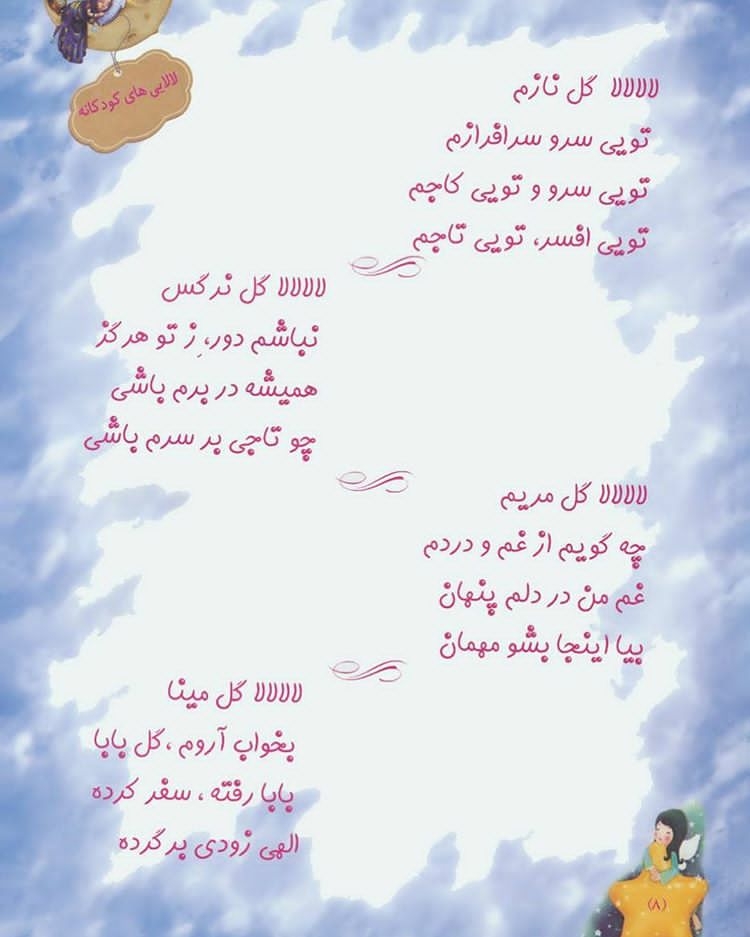 لالایی های کودکانه
لالالالا گل نازم
تویی سرو سرافرازم
تویی سرو و تویی کاجم
تویی افسر، تویی تاجم
لالالالا گل نرگس
نباشم دور، زِ تو هرگز
همیشه در برم باشی
چو تاجی بر سرم باشی
لالالالا گل مریم
چه گویم از غم و دردم
غم من در دلم پنهان
بیا اینجا بشو مهمان
لالالالا گل مینا
بخواب آروم ،گل بابا
بابا رفته ، سفر کرده
الهی زودی برگرده
(۸)